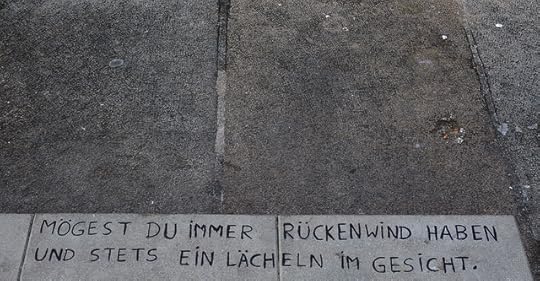 MÖGEST DU IMMER RÜCKENWIND HABEN
UND STETS EIN LÄCHELN IM GESICHT.